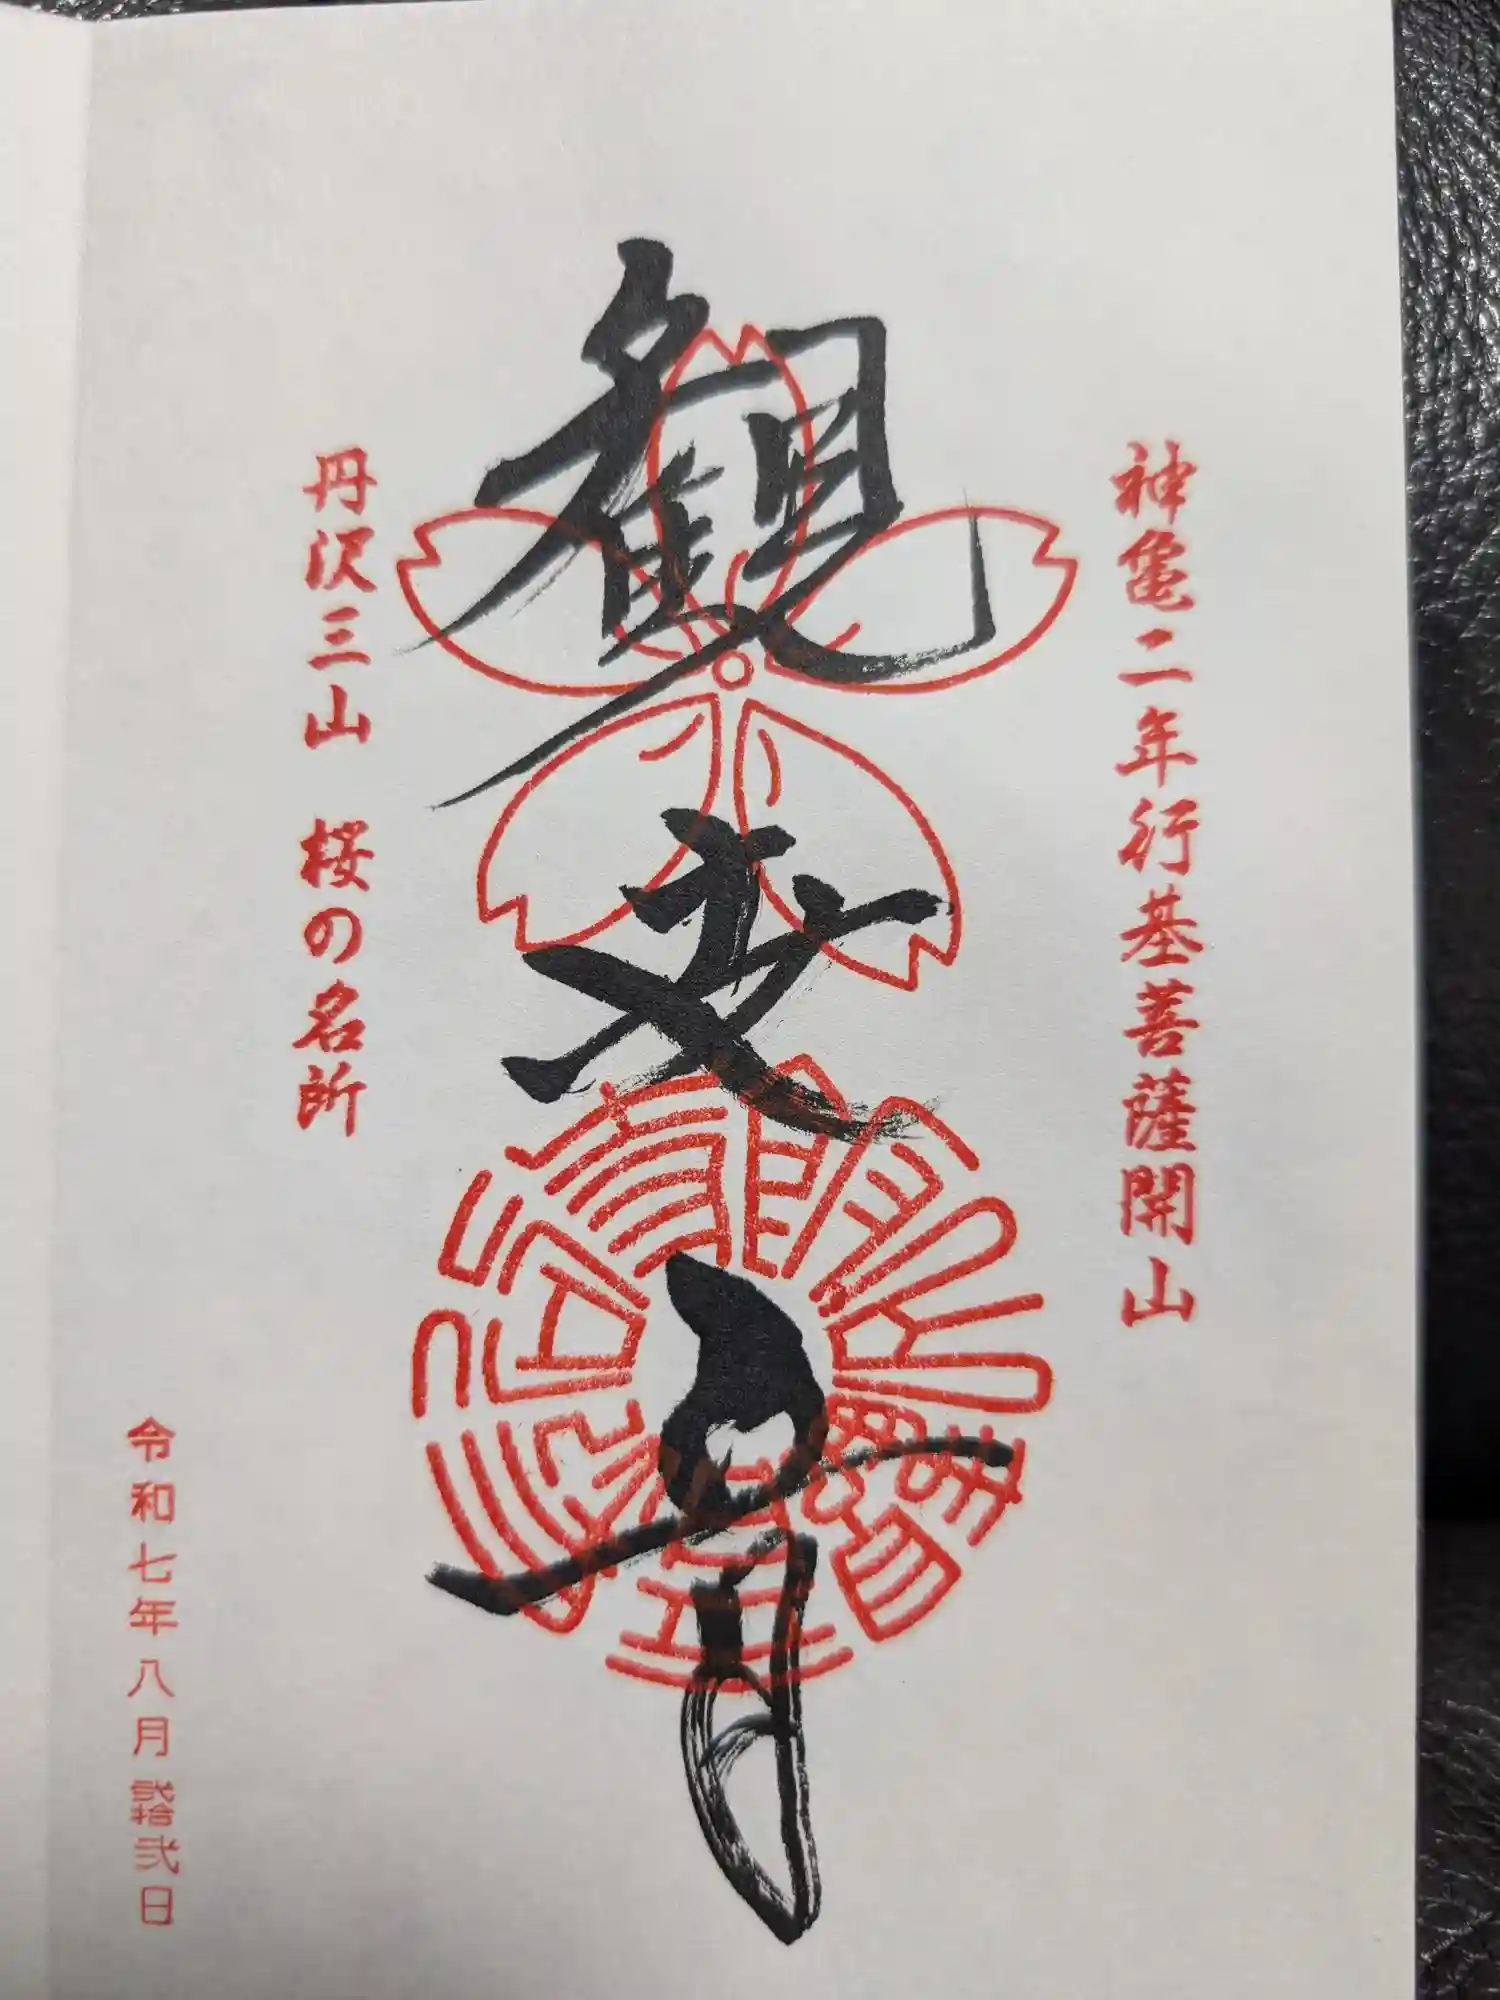 神亀二年行基菩薩開山
観世音
丹沢三山 桜の名所
令和七年八月弐拾弐日